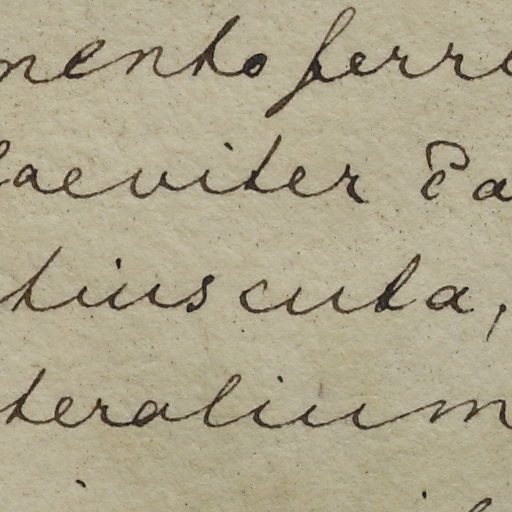 mento ferre
laeviter Ca
tius cuta,
teralium